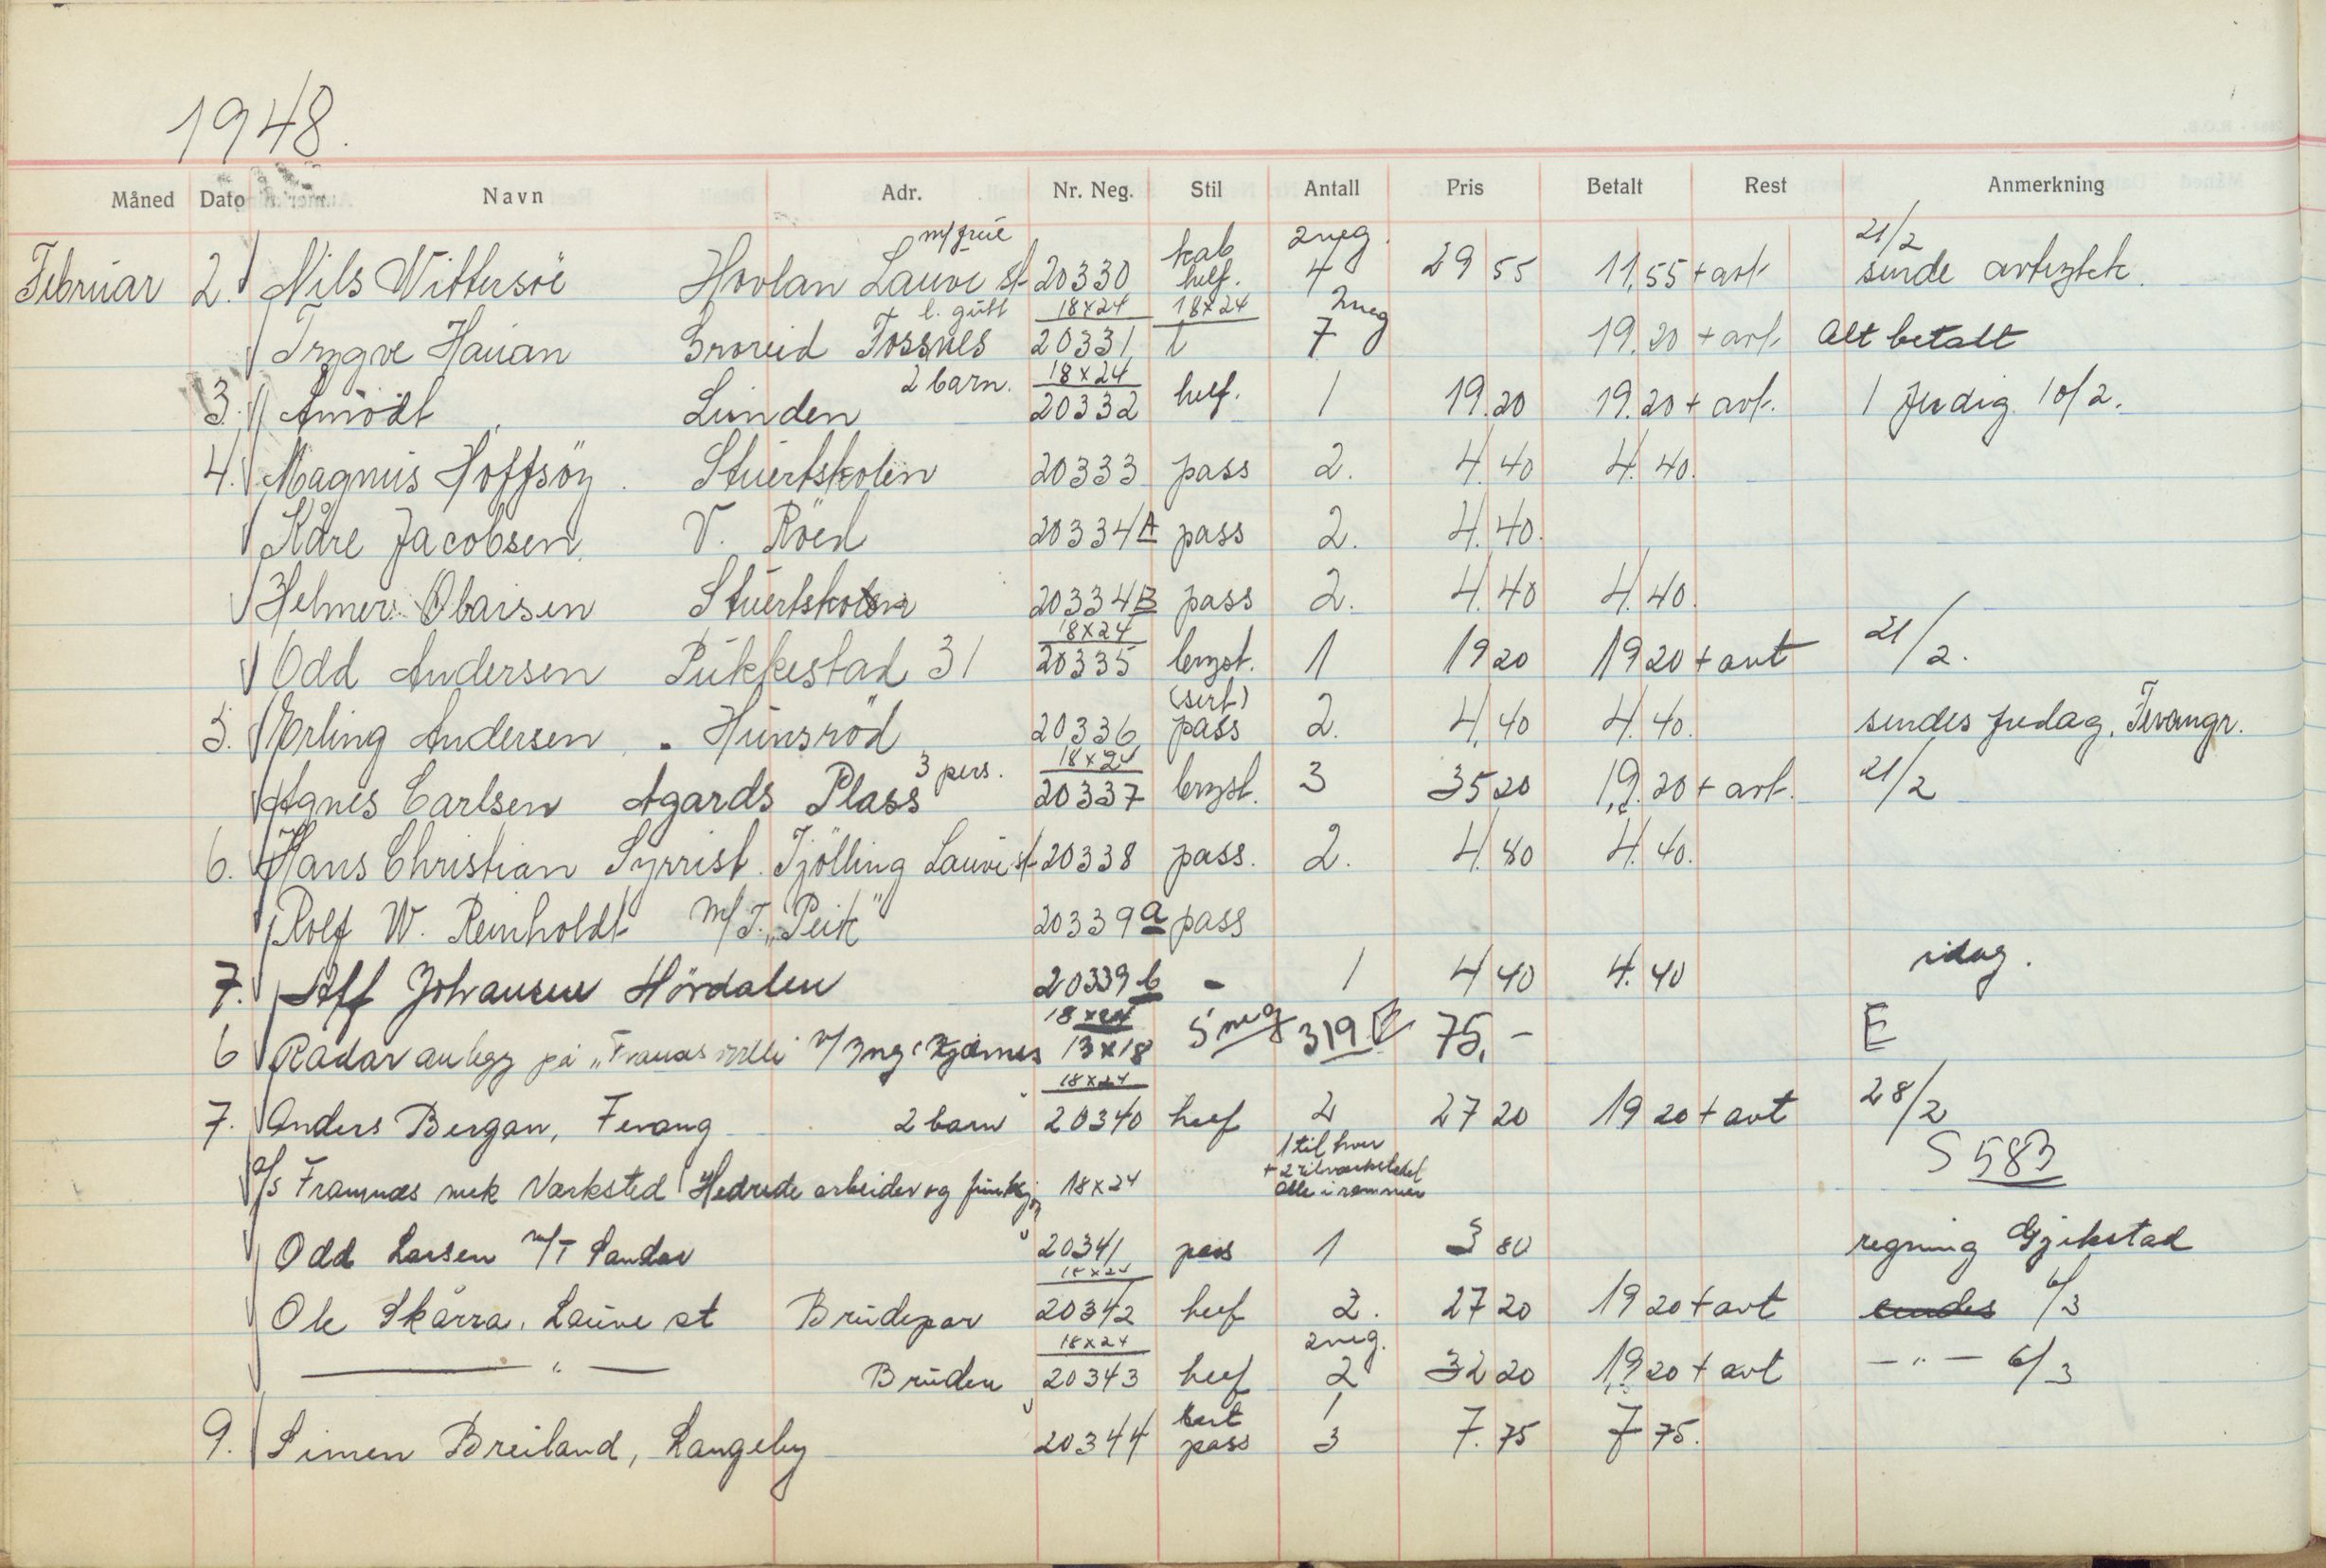 1948.
Måned Dato Navn Adr. Nr. Neg. Stil Antall Pris Betalt Rest Anmerkning
Februar 2. Nils Wittersöe Hovlan Lauve st m/frue 20330 kab helf. 2 neg. 4 29 55 11,55 + avt 21/2
Trygve Hauan Fossnes l. gutt 18x24 20331 18x24 2 neg 7 19.20 + avt. Alt betalt
3. Amödt Lunden 2 barn. 18x24 20332 helf. 1 19.20 19.20 + avt. 1 ferdig 10/2.
4. Magnus Hoffsöy Stuertskolen 20333 pass 2. 4.40 4.40.
Kåre Jacobsen V. Röed 20334 A pass 2. 4.40.
Helmer Stuertskolen 20334 B pass 2. 4.40 4.40.
Odd Andersen Pukkestad 31 18x24 20335 bryst. 1 19 20 19 20 + avt 21/2.
5. Erling Andersen Hunsröd 20336 (sert) pass 2. 4,40 4.40. sendes fredag,
Agnes Carlsen Agards Plass 3 pers. 18x24 20337 bryst. 3 35 20 19.20 + avt. 21/2
6. Hans Christian Syrrist. Tjölling Lauve st 20338 pass. 2. 4.80 4.40.
Rolf W. Reinholdt M/T. "Peik" 20339 a pass
7. Alf Johansen Hördalen 20339 b - 1 4 40 4.40 idag.
6 Radar anlegg på v/ Ing. 18x24 13x18 5 neg 319 75,- E
7. Anders Bergan, Fevang 2 barn 18x24 20340 helf 2 27 20 19 20 + avt 28/2
A/s Framnæs mek Værksted Hedrede arbeider og 18x24 1 til hver + 2 til værkstedet Alle i rammer S 583
Odd Larsen M/T Sandar 20341 pass 1 3 80 regning Gjekstad
Ole Skårra, Lauve st Brudepar 18x24 20342 helf 2. 27 20 19 20 + avt sendes 6/3
— " — Bruden 18x24 20343 helf 2 neg. 2 32 20 19 20 + avt — " — 6/3
9. Simen Breiland, Langeby 20344 sert pass 1 3 7.75 7 75.